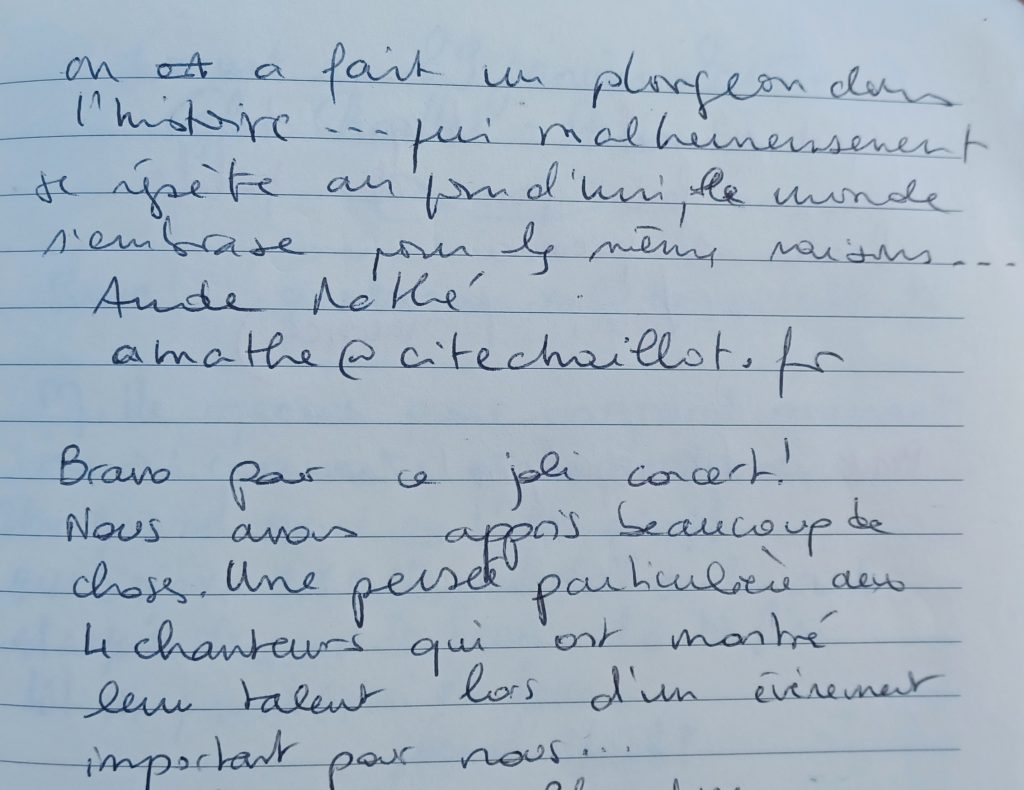 on a fait un plongeon dans
l'histoire --- qui malheureusement
se répète aujourd'hui, le monde
s'embrase pour les mêmes raisons...
Aude Mathé
amathe@citechaillot.fr
Bravo pour ce joli concert!
Nous avons appris beaucoup de
choses. Une pensée particulière aux
4 chanteurs qui ont montré
leur talent lors d'un évènement
important pour nous...